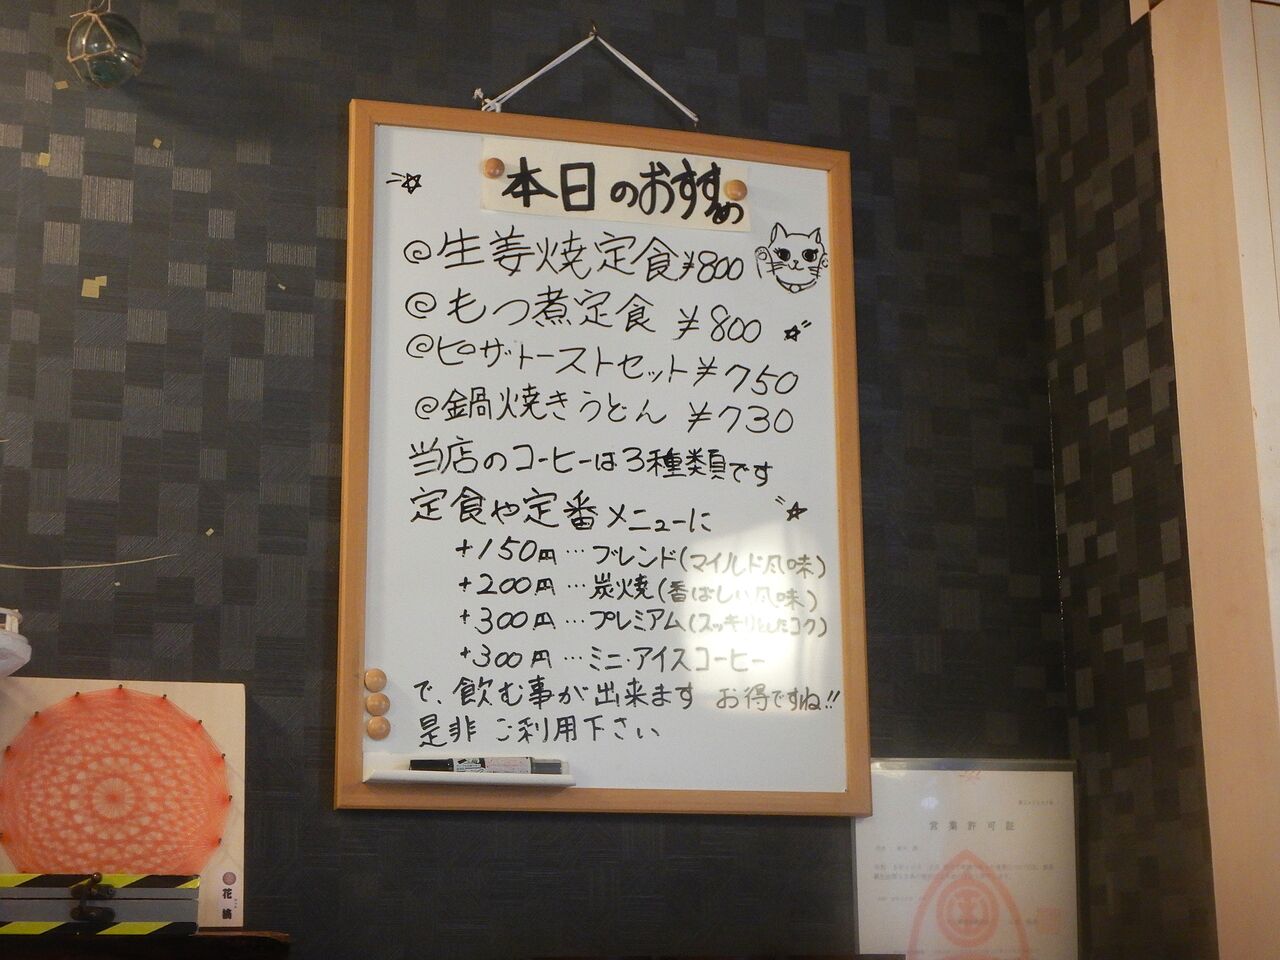 本日のおすすめ
@生姜焼定食¥800
@もつ煮定食 ¥800
@ピザトーストセット¥750
@鍋焼きうどん ¥730
当店のコーヒーは3種類です
定食や定番メニューに
+150円…ブレンド(マイルド風味)
+200円…炭焼(香ばしい風味)
+300円…プレミアム(スッキリとしたコク)
+300円…ミニ・アイスコーヒー
で、飲む事が出来ます お得ですね!!
是非 ご利用下さい
営業許可証